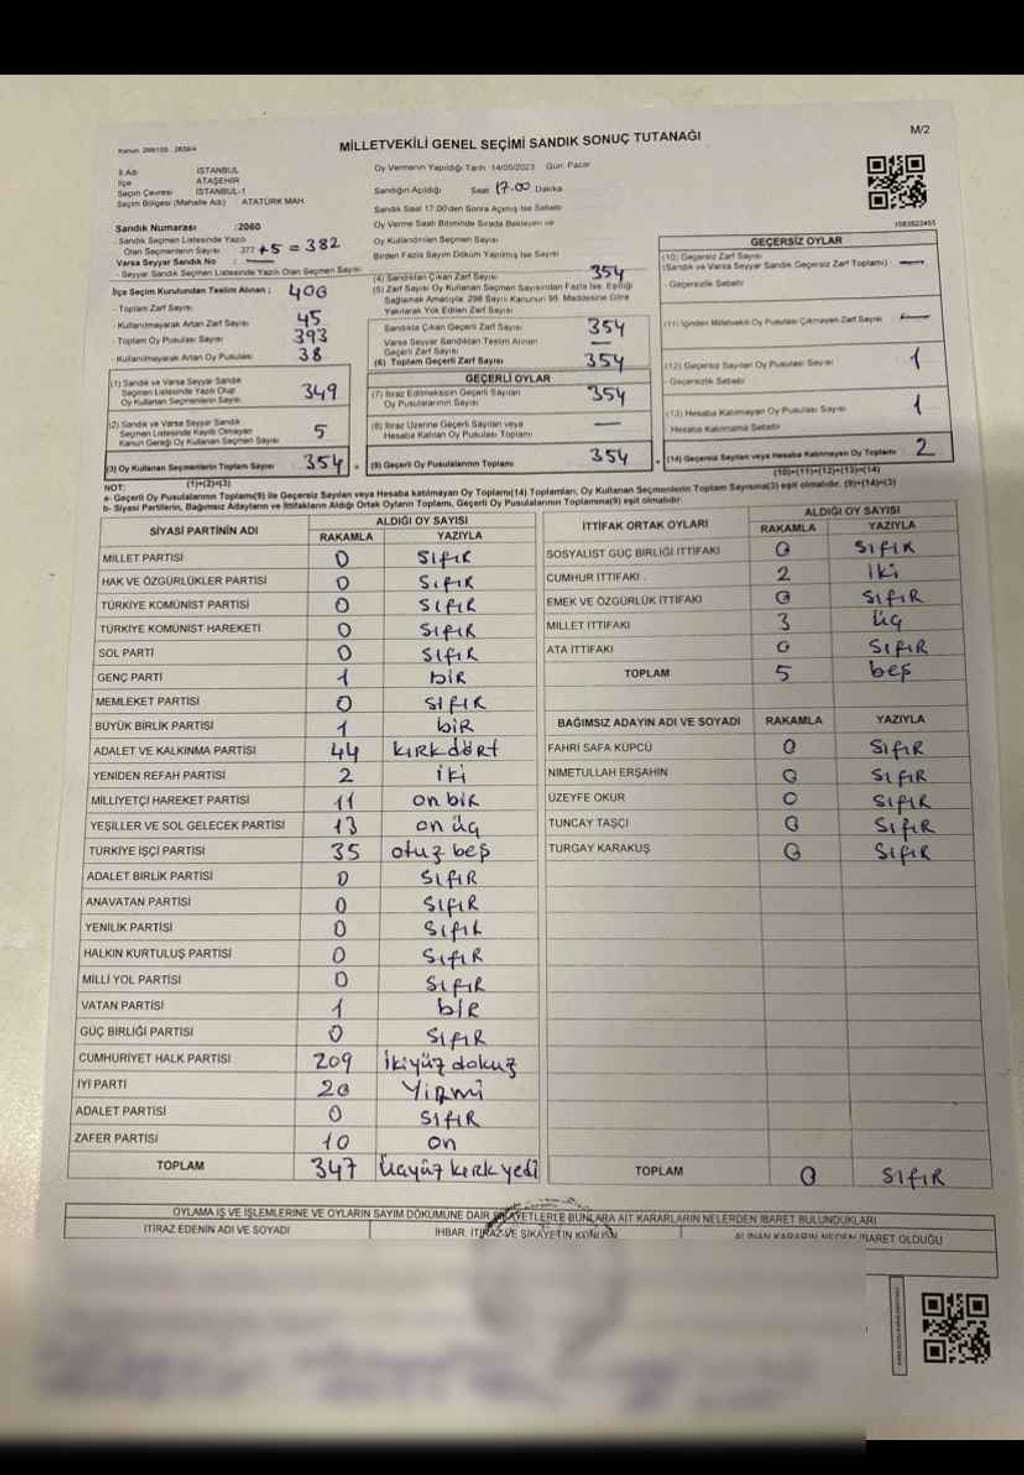 M/2
MİLLETVEKİLİ GENEL SEÇİMİ SANDIK SONUÇ TUTANAĞI
İl Adı İSTANBUL
İlçe ATAŞEHİR
Seçim Çevresi İSTANBUL-1
Seçim Bölgesi (Mahalle Adı) ATATÜRK MAH.
Oy Vermenin Yapıldığı Tarih :14/05/2023 Gün: Pazar
Sandığın Açıldığı Saat 17.00 Dakika
Sandık Saat 17.00'den Sonra Açılmış İse Sebebi
Oy Verme Saati Bitiminde Sırada Bekleyen ve
Oy Kullandırılan Seçmen Sayısı
Birden Fazla Sayım Döküm Yapılmış İse Sayısı
Sandık Numarası :2060
- Sandık Seçmen Listesinde Yazılı
Olan Seçmenlerin Sayısı 377 +5 = 382
Varsa Seyyar Sandık No : —
- Seyyar Sandık Seçmen Listesinde Yazılı Olan Seçmen Sayısı
İlçe Seçim Kurulundan Teslim Alınan ; 400
- Toplam Zarf Sayısı
- Kullanılmayarak Artan Zarf Sayısı 45
- Toplam Oy Pusulası Sayısı 393
- Kullanılmayarak Artan Oy Pusulası 38
(1) Sandık ve Varsa Seyyar Sandık
Seçmen Listesinde Yazılı Olup
Oy Kullanan Seçmenlerin Sayısı 349
(2) Sandık ve Varsa Seyyar Sandık
Seçmen Listesinde Kayıtlı Olmayan
Kanun Gereği Oy Kullanan Seçmen Sayısı 5
(3) Oy Kullanan Seçmenlerin Toplam Sayısı 354
(1)+(2)=(3)
(4) Sandıktan Çıkan Zarf Sayısı 354
(5) Zarf Sayısı Oy Kullanan Seçmen Sayısından Fazla İse, Eşitliği
Sağlamak Amacıyla, 298 Sayılı Kanunun 98. Maddesine Göre
Yakılarak Yok Edilen Zarf Sayısı
Sandıkta Çıkan Geçerli Zarf Sayısı 354
Varsa Seyyar Sandıktan Teslim Alınan
Geçerli Zarf Sayısı —
(6) Toplam Geçerli Zarf Sayısı 354
GEÇERLİ OYLAR
(7) İtiraz Edilmeksizin Geçerli Sayılan
Oy Pusulalarının Sayısı 354
(8) İtiraz Üzerine Geçerli Sayılan veya
Hesaba Katılan Oy Pusulası Toplamı —
(9) Geçerli Oy Pusulalarının Toplamı 354
GEÇERSİZ OYLAR
(10) Geçersiz Zarf Sayısı
(Sandık ve Varsa Seyyar Sandık Geçersiz Zarf Toplamı) : —
- Geçersizlik Sebebi
(11) İçinden Milletvekili Oy Pusulası Çıkmayan Zarf Sayısı —
(12) Geçersiz Sayılan Oy Pusulası Sayısı 1
- Geçersizlik Sebebi
(13) Hesaba Katılmayan Oy Pusulası Sayısı 1
Hesaba Katılmama Sebebi
(14) Geçersiz Sayılan veya Hesaba Katılmayan Oy Toplamı 2
(10)+(11)+(12)+(13)=(14)
NOT:
a- Geçerli Oy Pusulalarının Toplamı(9) ile Geçersiz Sayılan veya Hesaba katılmayan Oy Toplamı(14) Toplamları, Oy Kullanan Seçmenlerin Toplam Sayısına(3) eşit olmalıdır. (9)+(14)=(3)
b- Siyasi Partilerin, Bağımsız Adayların ve İttifakların Aldığı Ortak Oyların Toplamı, Geçerli Oy Pusulalarının Toplamına(9) eşit olmalıdır.
SİYASİ PARTİNİN ADI ALDIĞI OY SAYISI
RAKAMLA YAZIYLA
MİLLET PARTİSİ 0 SIFIR
HAK VE ÖZGÜRLÜKLER PARTİSİ 0 SIFIR
TÜRKİYE KOMÜNİST PARTİSİ 0 SIFIR
TÜRKİYE KOMÜNİST HAREKETİ 0 SIFIR
SOL PARTİ 0 SIFIR
GENÇ PARTİ 1 bİR
MEMLEKET PARTİSİ 0 SIFIR
BÜYÜK BİRLİK PARTİSİ 1 bİR
ADALET VE KALKINMA PARTİSİ 44 kıRk dört
YENİDEN REFAH PARTİSİ 2 iki
MİLLİYETÇİ HAREKET PARTİSİ 11 on biR
YEŞİLLER VE SOL GELECEK PARTİSİ 13 on üç
TÜRKİYE İŞÇİ PARTİSİ 35 otuz beş
ADALET BİRLİK PARTİSİ 0 SIFIR
ANAVATAN PARTİSİ 0 SIFIR
YENİLİK PARTİSİ 0 SIFIR
HALKIN KURTULUŞ PARTİSİ 0 SIFIR
MİLLİ YOL PARTİSİ 0 SIFIR
VATAN PARTİSİ 1 bİR
GÜÇ BİRLİĞİ PARTİSİ 0 SIFIR
CUMHURİYET HALK PARTİSİ 209 İkiyüz dokuz
İYİ PARTİ 20 YİRmi
ADALET PARTİSİ 0 SIFIR
ZAFER PARTİSİ 10 on
TOPLAM 347 Üçyüz kıRk yedi
İTTİFAK ORTAK OYLARI ALDIĞI OY SAYISI
RAKAMLA YAZIYLA
SOSYALİST GÜÇ BİRLİĞİ İTTİFAKI 0 SIFIR
CUMHUR İTTİFAKI 2 İki
EMEK VE ÖZGÜRLÜK İTTİFAKI 0 SIFIR
MİLLET İTTİFAKI 3 üç
ATA İTTİFAKI 0 SIFIR
TOPLAM 5 beş
BAĞIMSIZ ADAYIN ADI VE SOYADI RAKAMLA YAZIYLA
FAHRİ SAFA KÜPCÜ 0 SIFIR
NİMETULLAH ERŞAHİN 0 SIFIR
ÜZEYFE OKUR 0 SIFIR
TUNCAY TAŞÇI 0 SIFIR
TURGAY KARAKUŞ 0 SIFIR
TOPLAM 0 SIFIR
OYLAMA İŞ VE İŞLEMLERİNE VE OYLARIN SAYIM DÖKÜMÜNE DAİR ŞİKAYETLERLE BUNLARA AİT KARARLARIN NELERDEN İBARET BULUNDUKLARI
İTİRAZ EDENİN ADI VE SOYADI İHBAR, İTİRAZ VE ŞİKAYETİN KONUSU ALINAN KARARIN NEDEN İBARET OLDUĞU